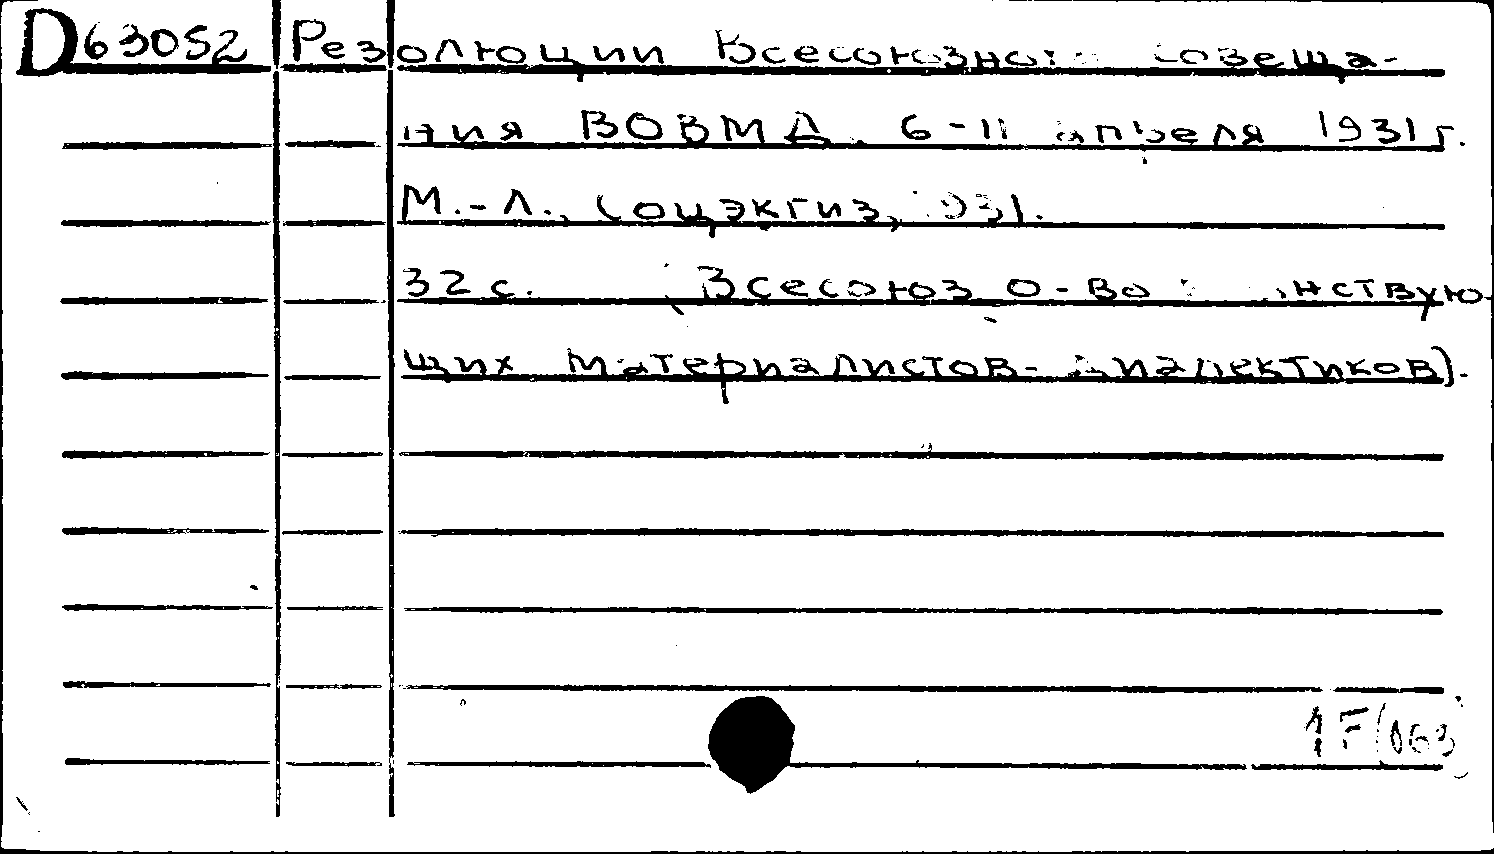 D63052 Резолюции Всесоюзного совеща-
ния ВОВМД. 6-11 апреля 1931 г.
М.-Л., Соцэкгиз, 1931.
32 с. (Всесоюз о-во воинствую-
щих материалистов-диалектиков).
1F/063